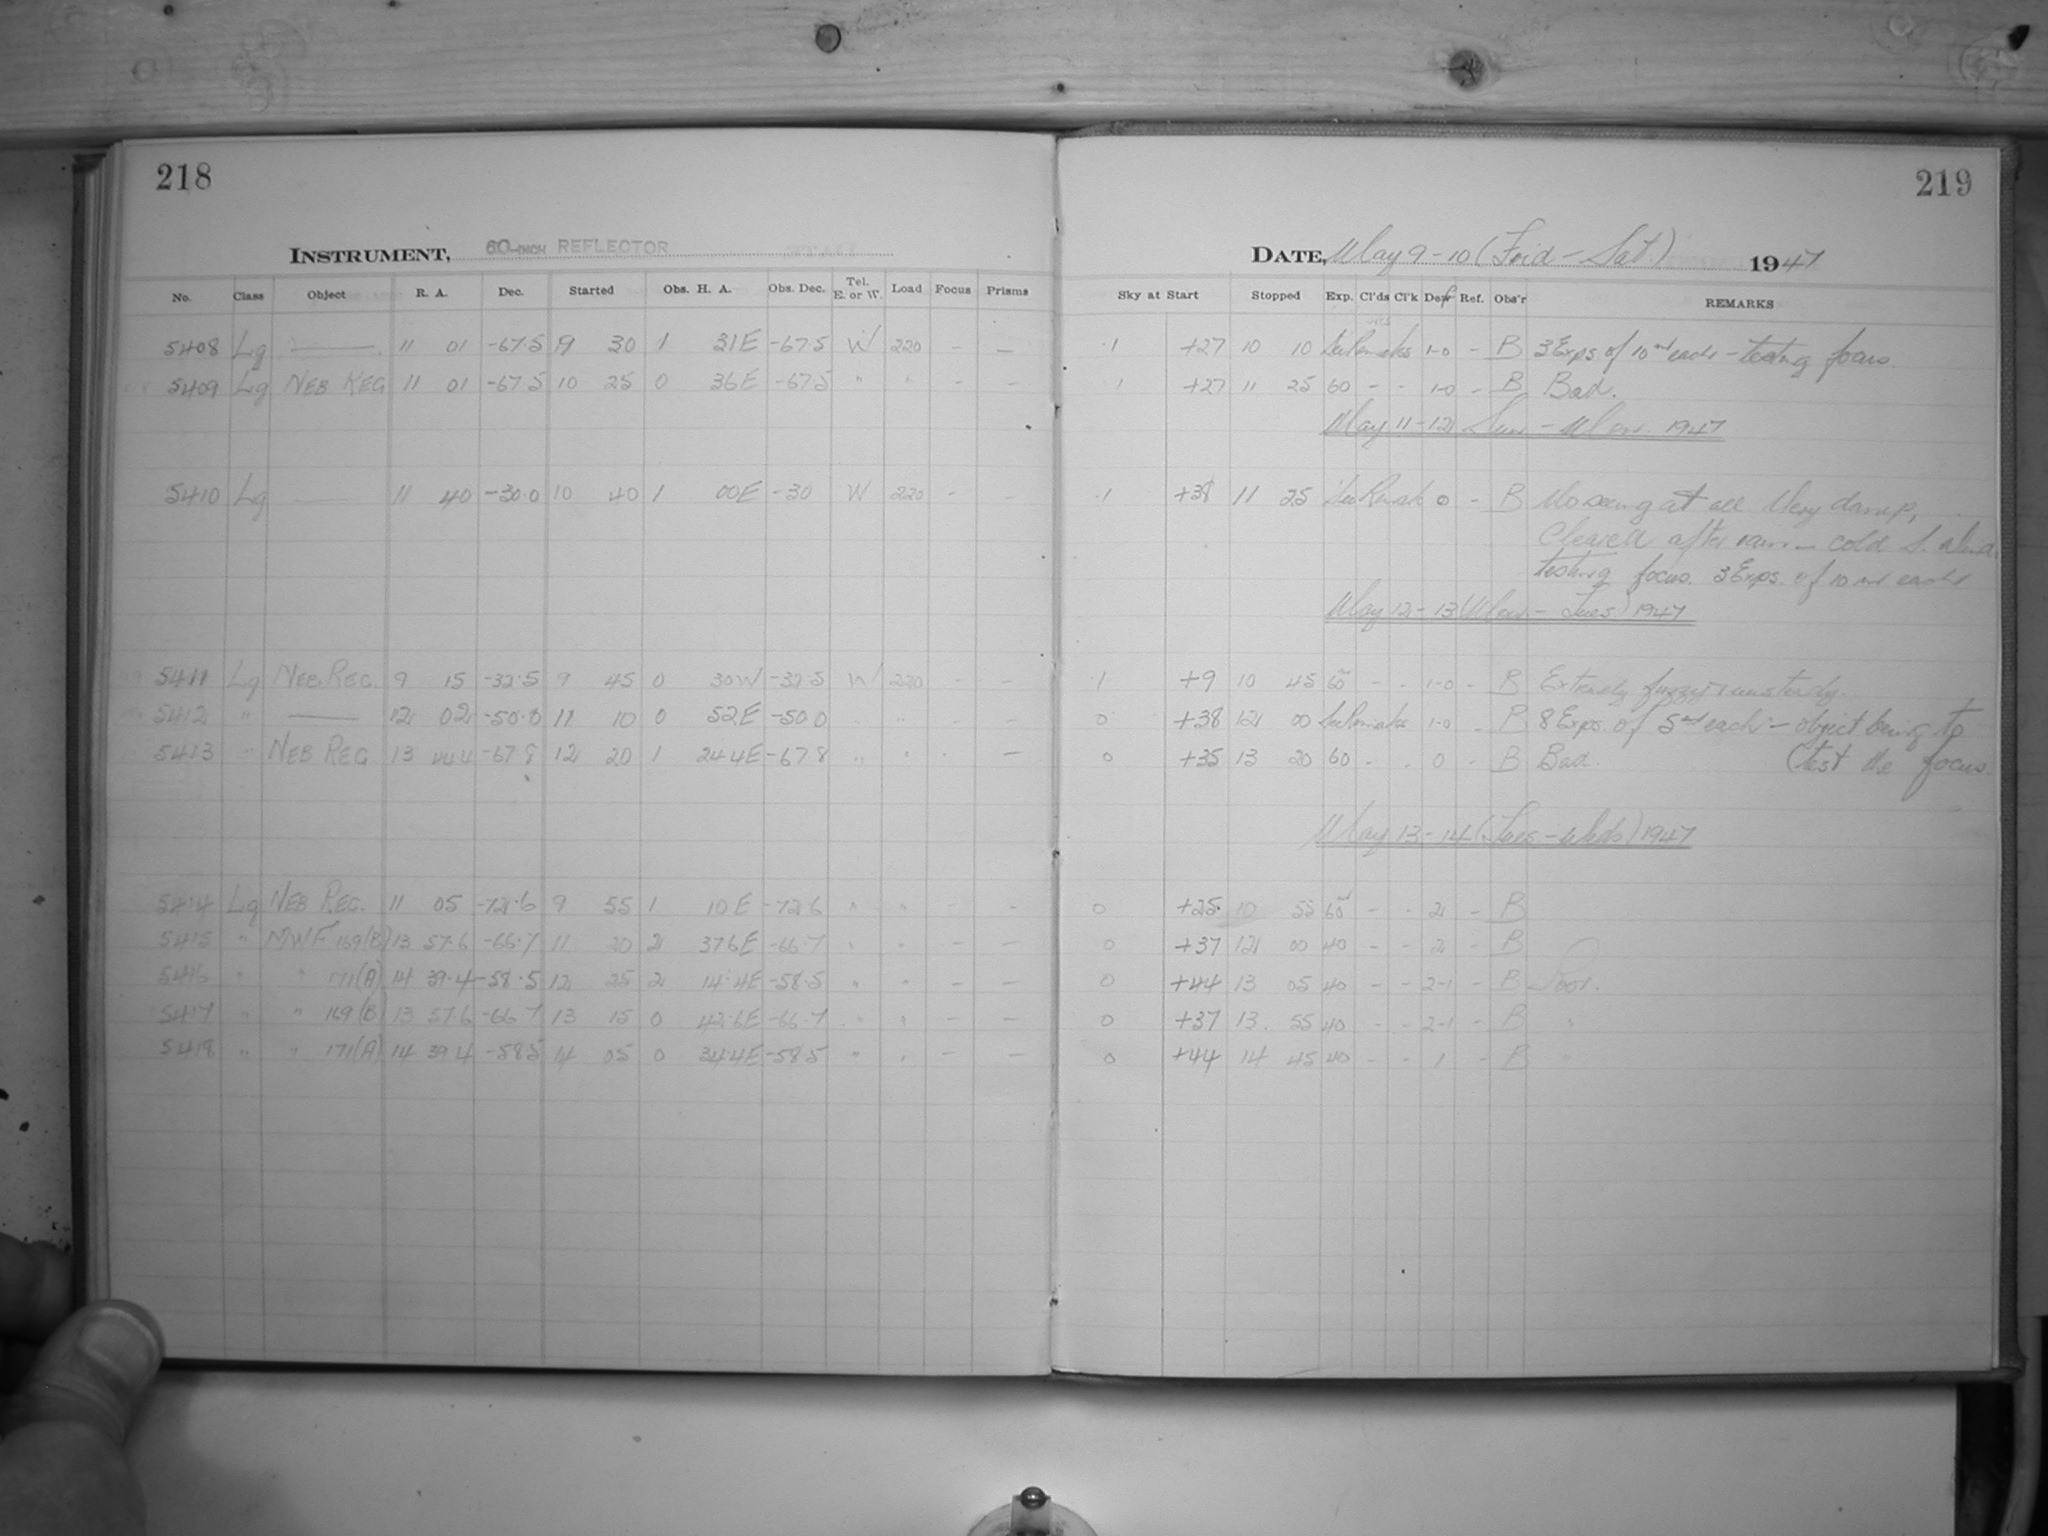 218
INSTRUMENT, 60-INCH REFLECTOR
No. Class Object R. A. Dec. Started Obs. H. A. Obs. Dec. Tel. E. or W. Load Focus Prisms
5408 Lg —— 11 01 -67.5 9 30 1 31E -67.5 W 220 - -
5409 Lg NEB REG 11 01 -67.5 10 25 0 36E -67.5 " " - -
5410 Lg —— 11 40 -30.0 10 40 1 00E -30 W 220 - -
5411 Lg NEB. REG. 9 15 -32.5 9 45 0 30W -32.5 W 220 - -
5412 " —— 12 02 -50.0 11 10 0 52E -50.0 " " -
5413 " NEB REG 13 44.4 -67.8 12 20 1 24.4E -67.8 " " - -
5414 Lg NEB REG. 11 05 -72.6 9 55 1 10E -72.6 " " - -
5415 " MWF 169(B) 13 57.6 -66.7 11 20 2 37.6E -66.7 " " - -
5416 " " 171(A) 14 39.4 -58.5 12 25 2 14.4E -58.5 " " - -
5417 " " 169(B) 13 57.6 -66.7 13 15 0 42.6E -66.7 " " - -
5418 " " 171(A) 14 39.4 -58.5 14 05 0 34.4E -58.5 " " - -
219
DATE, May 9-10 (Frid - Sat) 1947
Sky at Start Stopped Exp. Cl'ds Cl'k Def Ref. Obs'r REMARKS
.1 +27 10 10 See Remarks 1-0 - B 3 Exps of 10m each - testing focus.
1 +27 11 25 60 - - 1-0 - B Bad.
May 11-12 Sun - Mon. 1947
.1 +38 11 25 See Remark 0 - B No seeing at all. Very damp,
Cleared after rain - cold S. wind
testing focus. 3 Exps. of 10m each
May 12-13 (Mon - Tues) 1947
.1 +9 10 45 60 - - 1-0 - B Extremely fuzzy & unsteady.
0 +38 12 00 See Remarks 1-0 - B 8 Exps. of 5m each - object being to
0 +35 13 20 60 - - 0 - B Bad. (test the focus
May 13-14 (Tues - Weds) 1947
0 +25 10 55 60 - - 2 - B
0 +37 12 00 40 - - 2 - B
0 +44 13 05 40 - - 2-1 - B Poor.
0 +37 13 55 40 - - 2-1 - B "
0 +44 14 45 40 - - 1 - B "